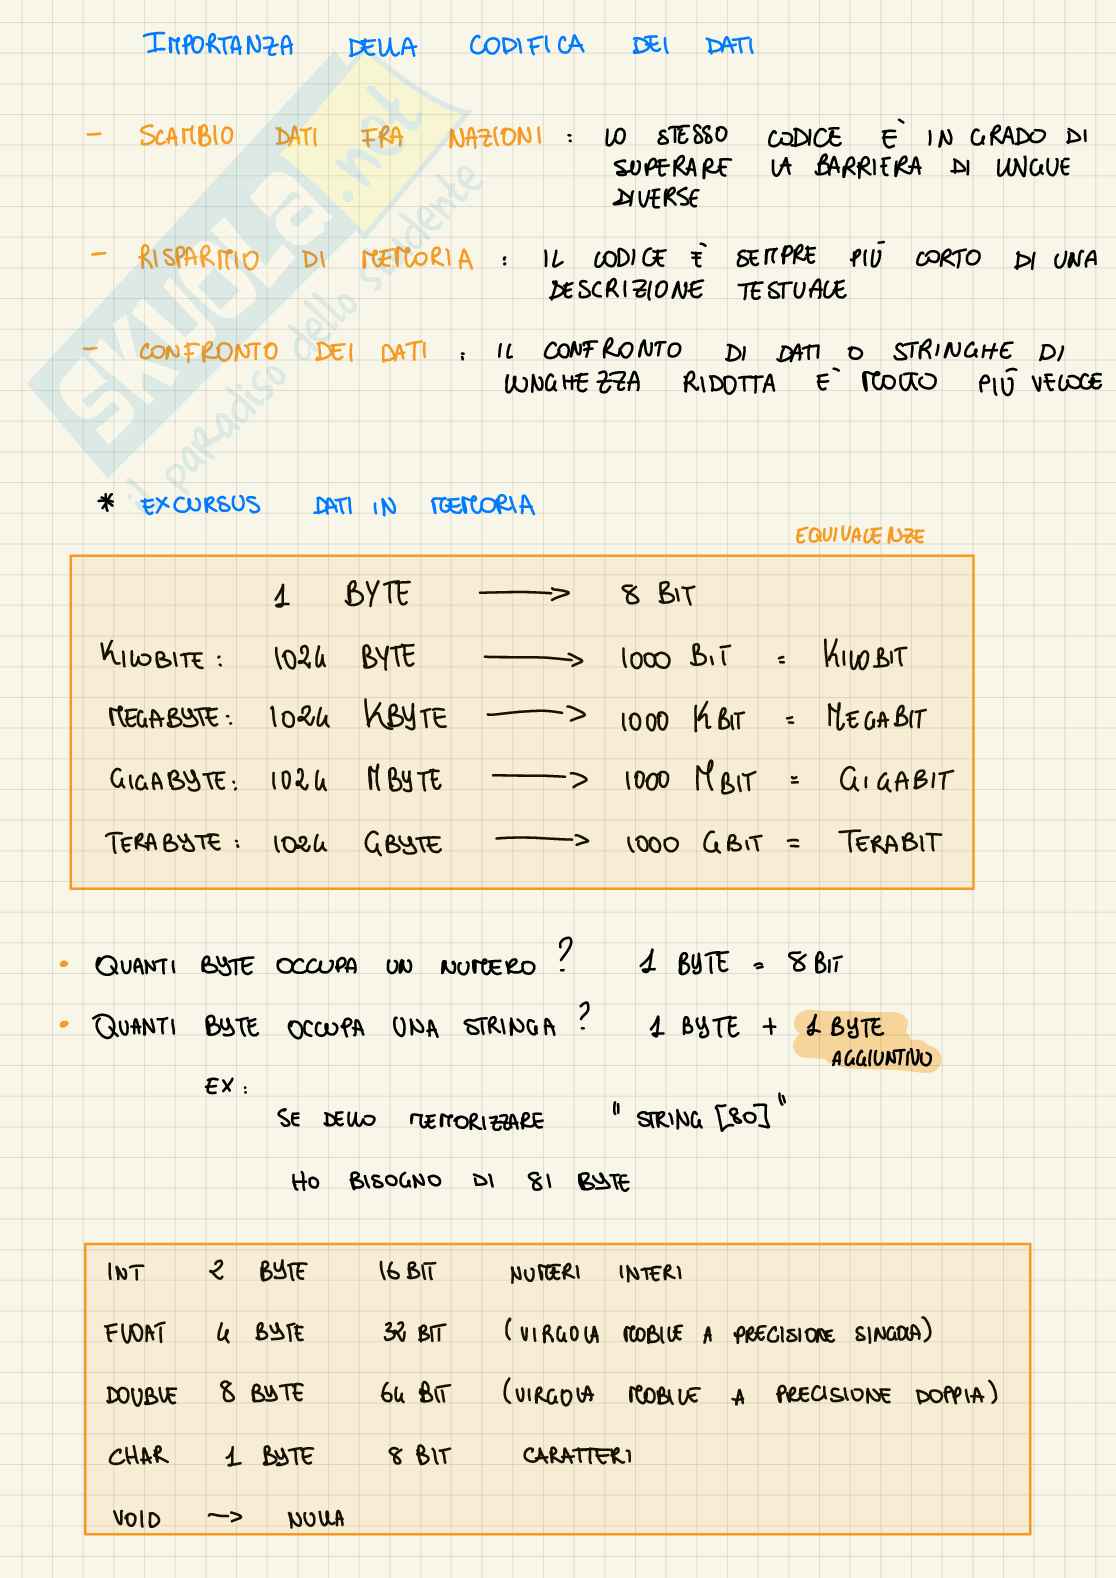 IMPORTANZA DELLA CODIFICA DEI DATI
- SCAMBIO DATI FRA NAZIONI : LO STESSO CODICE E' IN GRADO DI
SUPERARE LA BARRIERA DI LINGUE
DIVERSE
- RISPARMIO DI MEMORIA : IL CODICE È SEMPRE PIÙ CORTO DI UNA
DESCRIZIONE TESTUALE
- CONFRONTO DEI DATI : IL CONFRONTO DI DATI O STRINGHE DI
LUNGHEZZA RIDOTTA E' MOLTO PIÙ VELOCE
SKUOLA.net
il paradiso dello studente
* EXCURSUS DATI IN MEMORIA
EQUIVALENZE
1 BYTE → 8 BIT
KILOBITE : 1024 BYTE → 1000 BIT = KILOBIT
MEGABYTE : 1024 KBYTE → 1000 KBIT = MEGABIT
GIGABYTE : 1024 MBYTE → 1000 MBIT = GIGABIT
TERABYTE : 1024 GBYTE → 1000 GBIT = TERABIT
• QUANTI BYTE OCCUPA UN NUMERO ? 1 BYTE = 8 BIT
• QUANTI BYTE OCCUPA UNA STRINGA ? 1 BYTE + 1 BYTE
AGGIUNTIVO
EX :
SE DEVO MEMORIZZARE " STRING [80] "
HO BISOGNO DI 81 BYTE
INT 2 BYTE 16 BIT NUMERI INTERI
FLOAT 4 BYTE 32 BIT (VIRGOLA MOBILE A PRECISIONE SINGOLA)
DOUBLE 8 BYTE 64 BIT (VIRGOLA MOBILE A PRECISIONE DOPPIA)
CHAR 1 BYTE 8 BIT CARATTERI
VOID --> NULLA